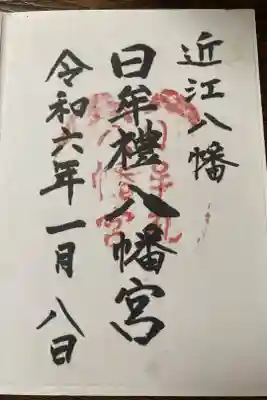 近江八幡
日牟禮八幡宮
令和六年一月八日